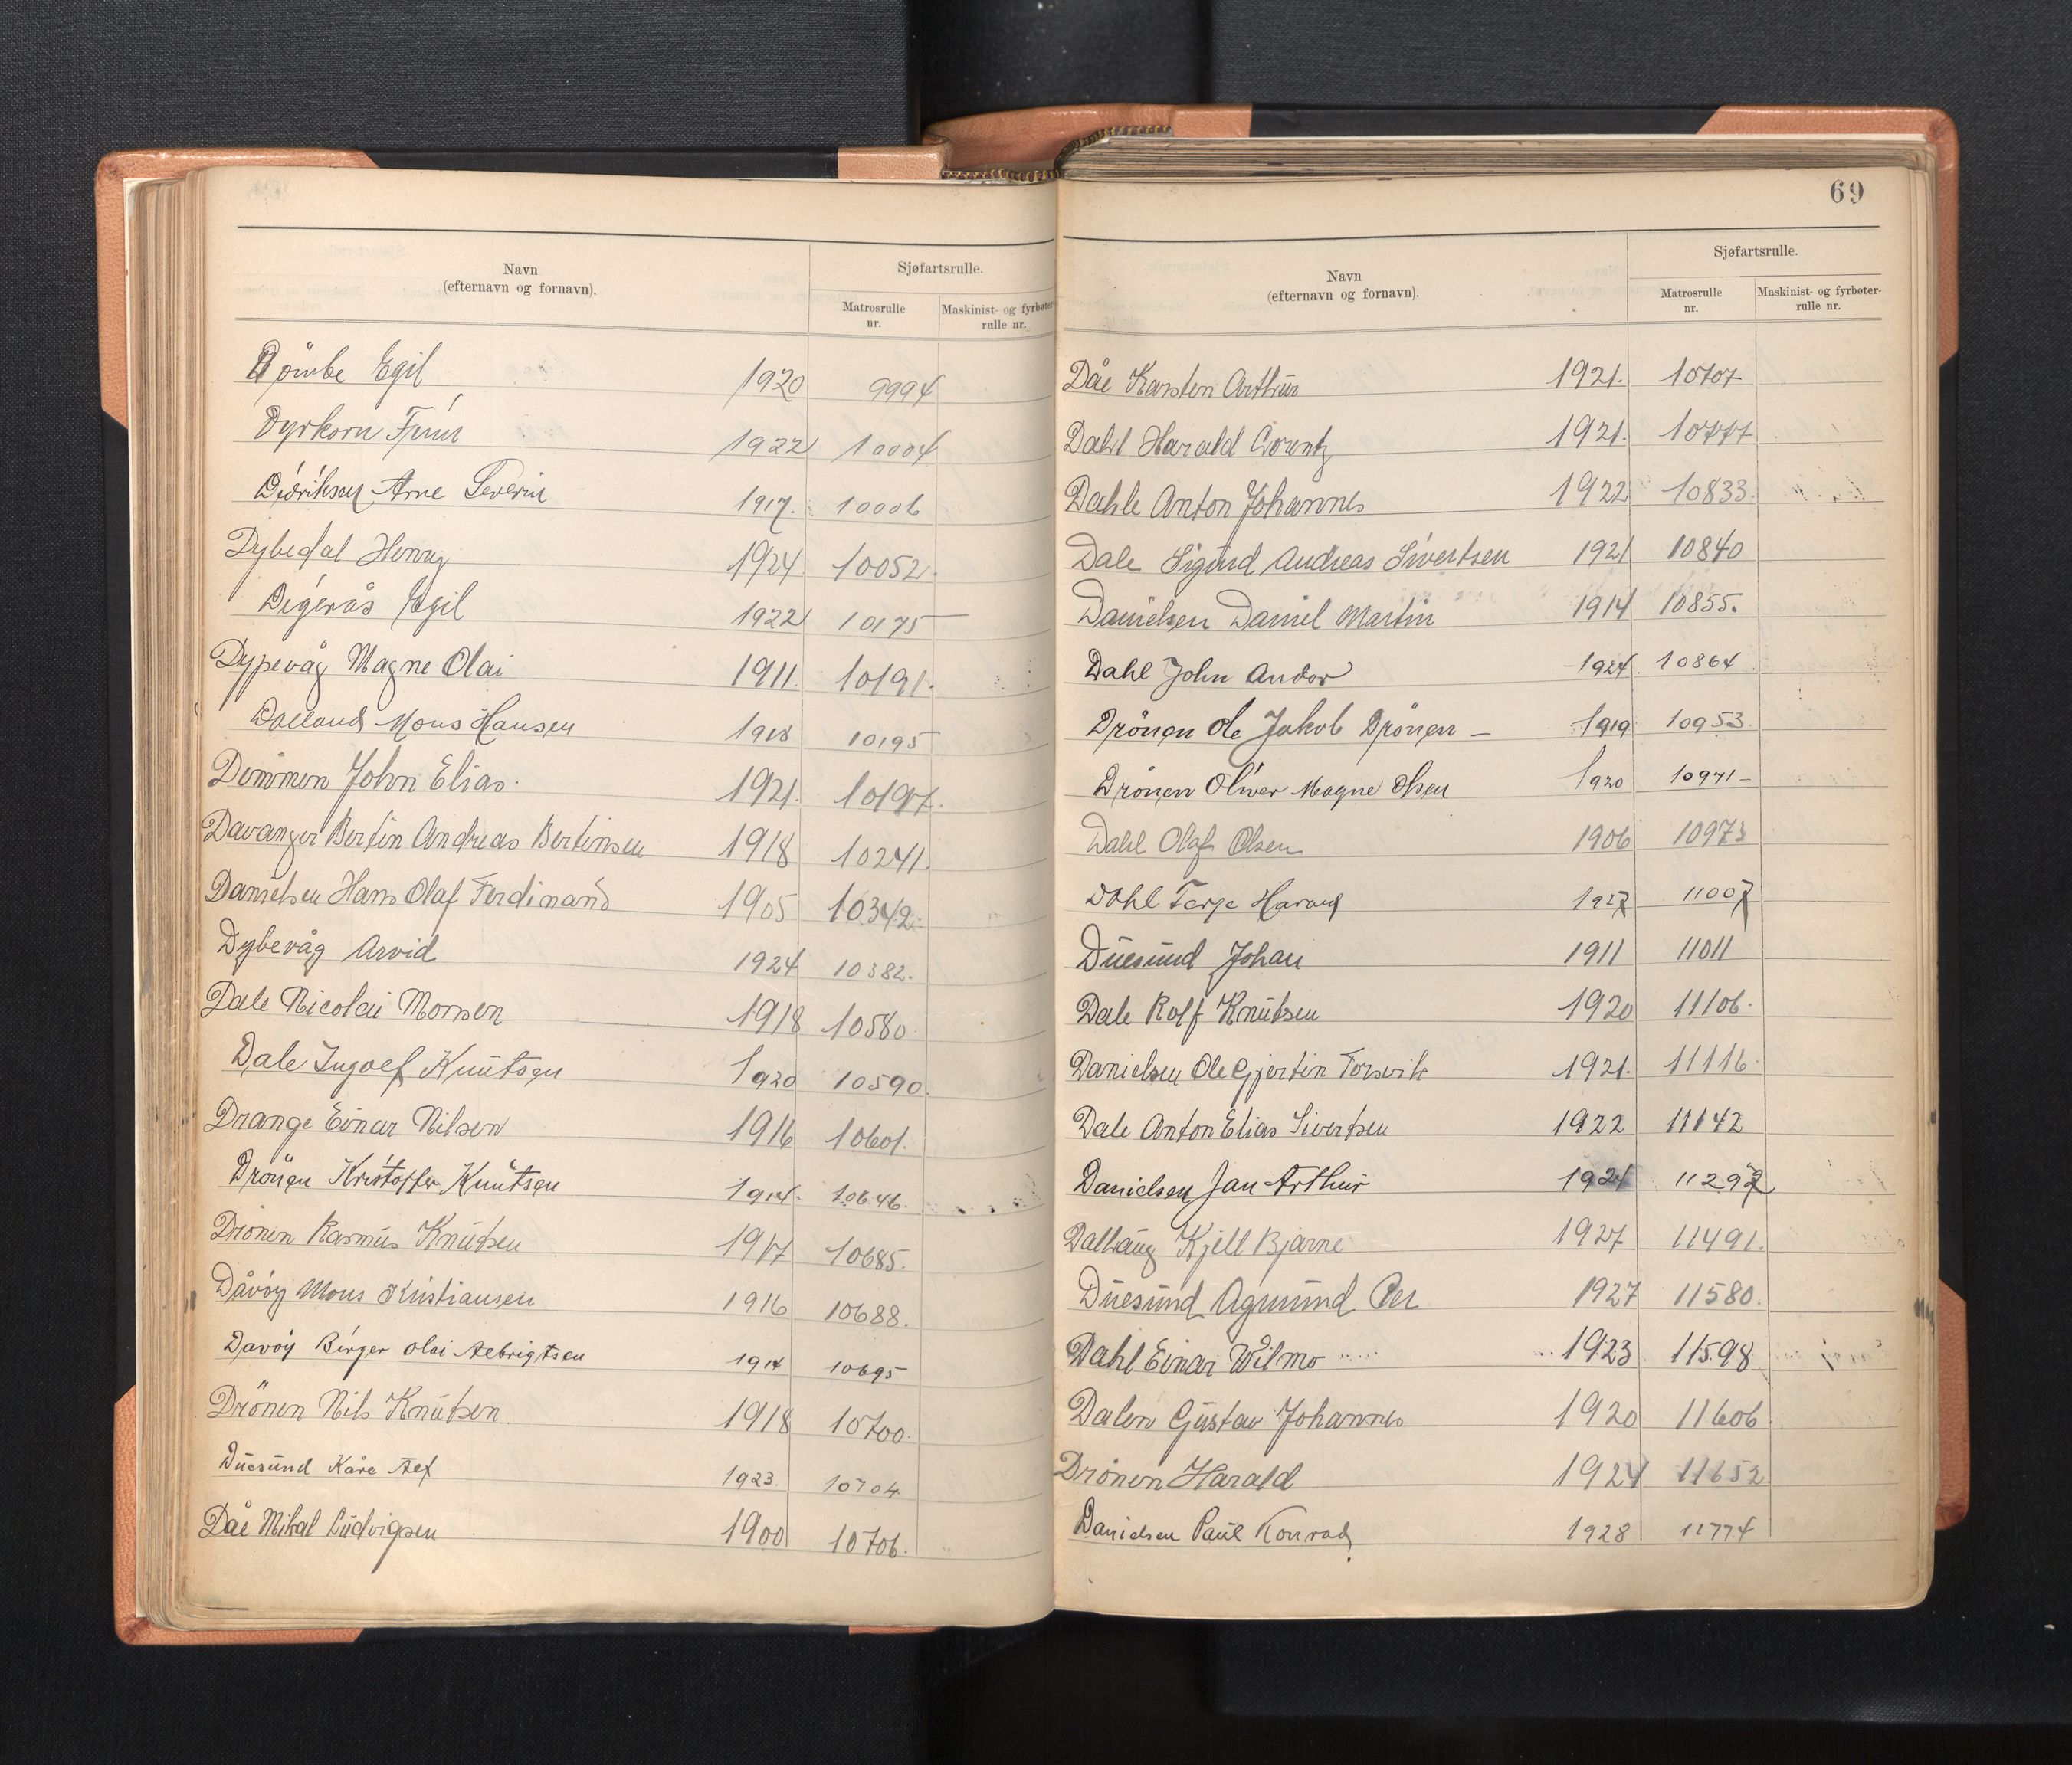 Navn
(efternavn og fornavn).
Sjøfartsrulle.
Matrosrulle
nr.
Maskinist- og fyrbøter-
rulle nr.
Dömbe Egil 1920 9994
Dyrkorn Finn 1922 10004
Didriksen Arne Severin 1917. 10006
Dybedal Henry 1924 10052.
Digerås Egil 1922 10175
Dypevåg Magne Olai 1911. 10191.
Dalland Mons Hansen 1918 10195
Dømmen John Elias. 1921. 10197.
Davanger Bertin Andreas Bertinsen 1918 10241.
Danielsen Hans Olaf Ferdinand 1905 10342.
Dybevåg Arvid 1924 10382.
Dale Nicolai Monsen 1918 10580.
Dale Ingolf Knutsen 1920 10590.
Drange Einar Nilsen 1916 10601.
Drönen Kristoffer Knutsen 1914. 10646.
Drönen Rasmus Knutsen 1917 10685.
Dåvöy Mons Kristiansen 1916 10688.
Davöy Birger Olai Aebrigtsen 1914 10695
Drönen Nils Knutsen 1918 10700.
Duesund Kåre Alf 1923. 10704
Dåe Mikal Ludvigsen 1900 10706.
69
Navn
(efternavn og fornavn).
Sjøfartsrulle.
Matrosrulle
nr.
Maskinist- og fyrbøter-
rulle nr.
Dåe Karsten Arthur 1921. 10707
Dahl Harald 1921. 10777
Dahle Anton Johannes 1922 10833.
Dale Sigurd Andreas Sivertsen 1921 10840
Danielsen Daniel Martin 1914 10855.
Dahl John Andor 1924. 10864
Drönen Ole Jakob Drönen – 1919 10953.
Drönen Oliver Magne Olsen 1920 10971–
Dahl Olaf Olsen 1906 10973
Dahl Terje Harald 1927 11007
Duesund Johan 1911 11011
Dale Rolf Knutsen 1920 11106.
Danielsen Ole Gjertin Forsvik 1921. 11116.
Dale Anton Elias Sivertsen 1922 11142
Danielsen Jan Arthur 1924 11292
Dalhaug Kjell Bjarne 1927 11491.
Duesund Agmund Per 1927 11580.
Dahl Einar Wilmo 1923 11598
Dalen Gustav Johannes 1920 11606
Drönen Harald 1924 11652
Danielsen Paul Konrad 1928 11774